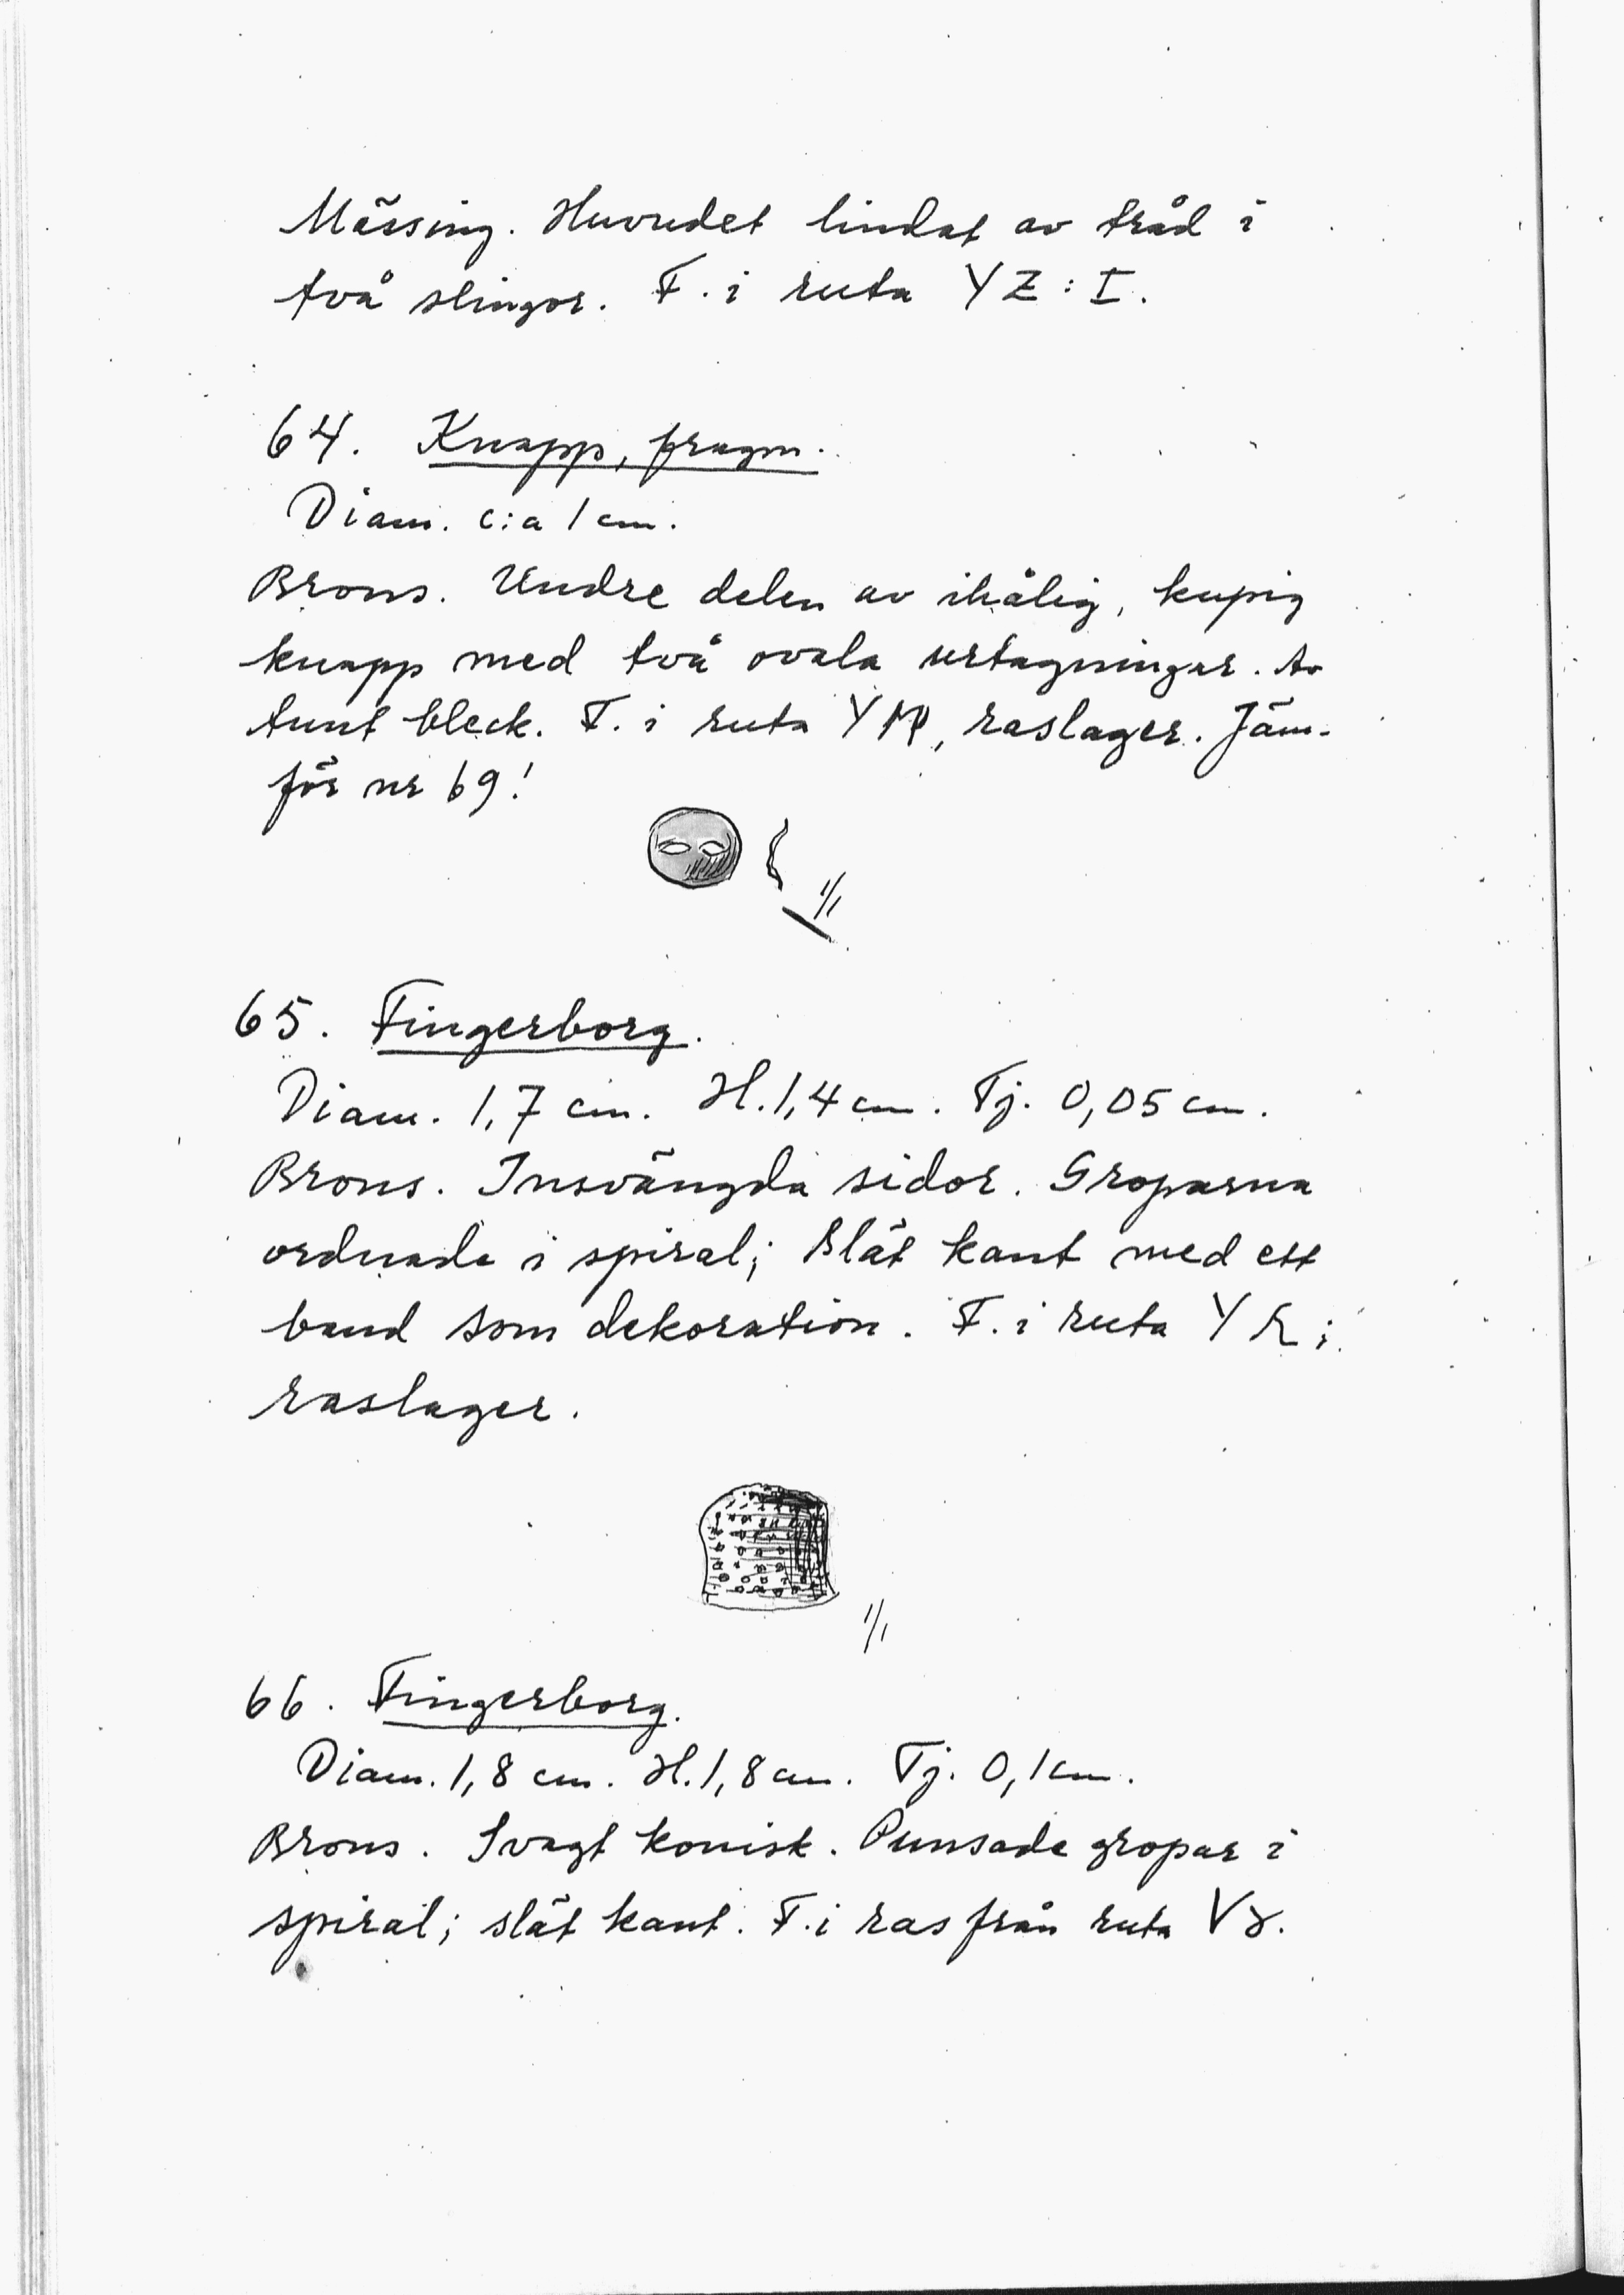 Mässing. Huvudet lindat av tråd i
två slingor. F. i ruta YZ: I.
64. Knapp, fragm.
Diam. c:a 1 cm.
Brons. Undre delen av ihålig, kupig
knapp med två ovala urtagningar. Av
tunt bleck. F. i ruta Y, raslager. Jäm-
för nr 69!
1/1
65. Fingerborg.
Diam. 1,7 cm. H. 1,4 cm. Tj. 0,05 cm.
Brons. Insvängda sidor. Groparna
ordnade i spiral; slät kant med ett
band som dekoration. F. i ruta Y;
raslager.
1/1
66. Fingerborg.
Diam. 1,8 cm. H. 1,8 cm. Tj. 0,1 cm.
Brons. Svagt konisk. Punsade gropar i
spiral; slät kant. F. i ras från ruta V